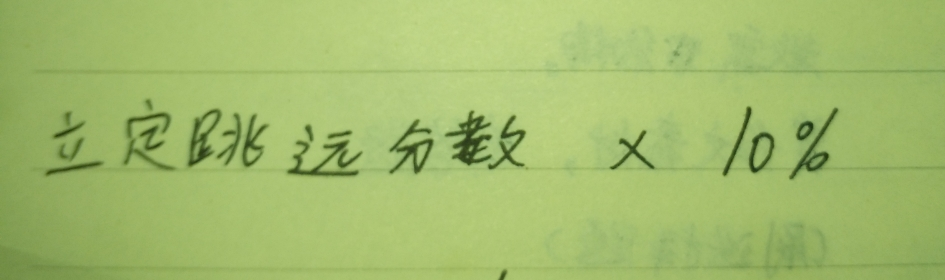 立定跳远分数 × 10%